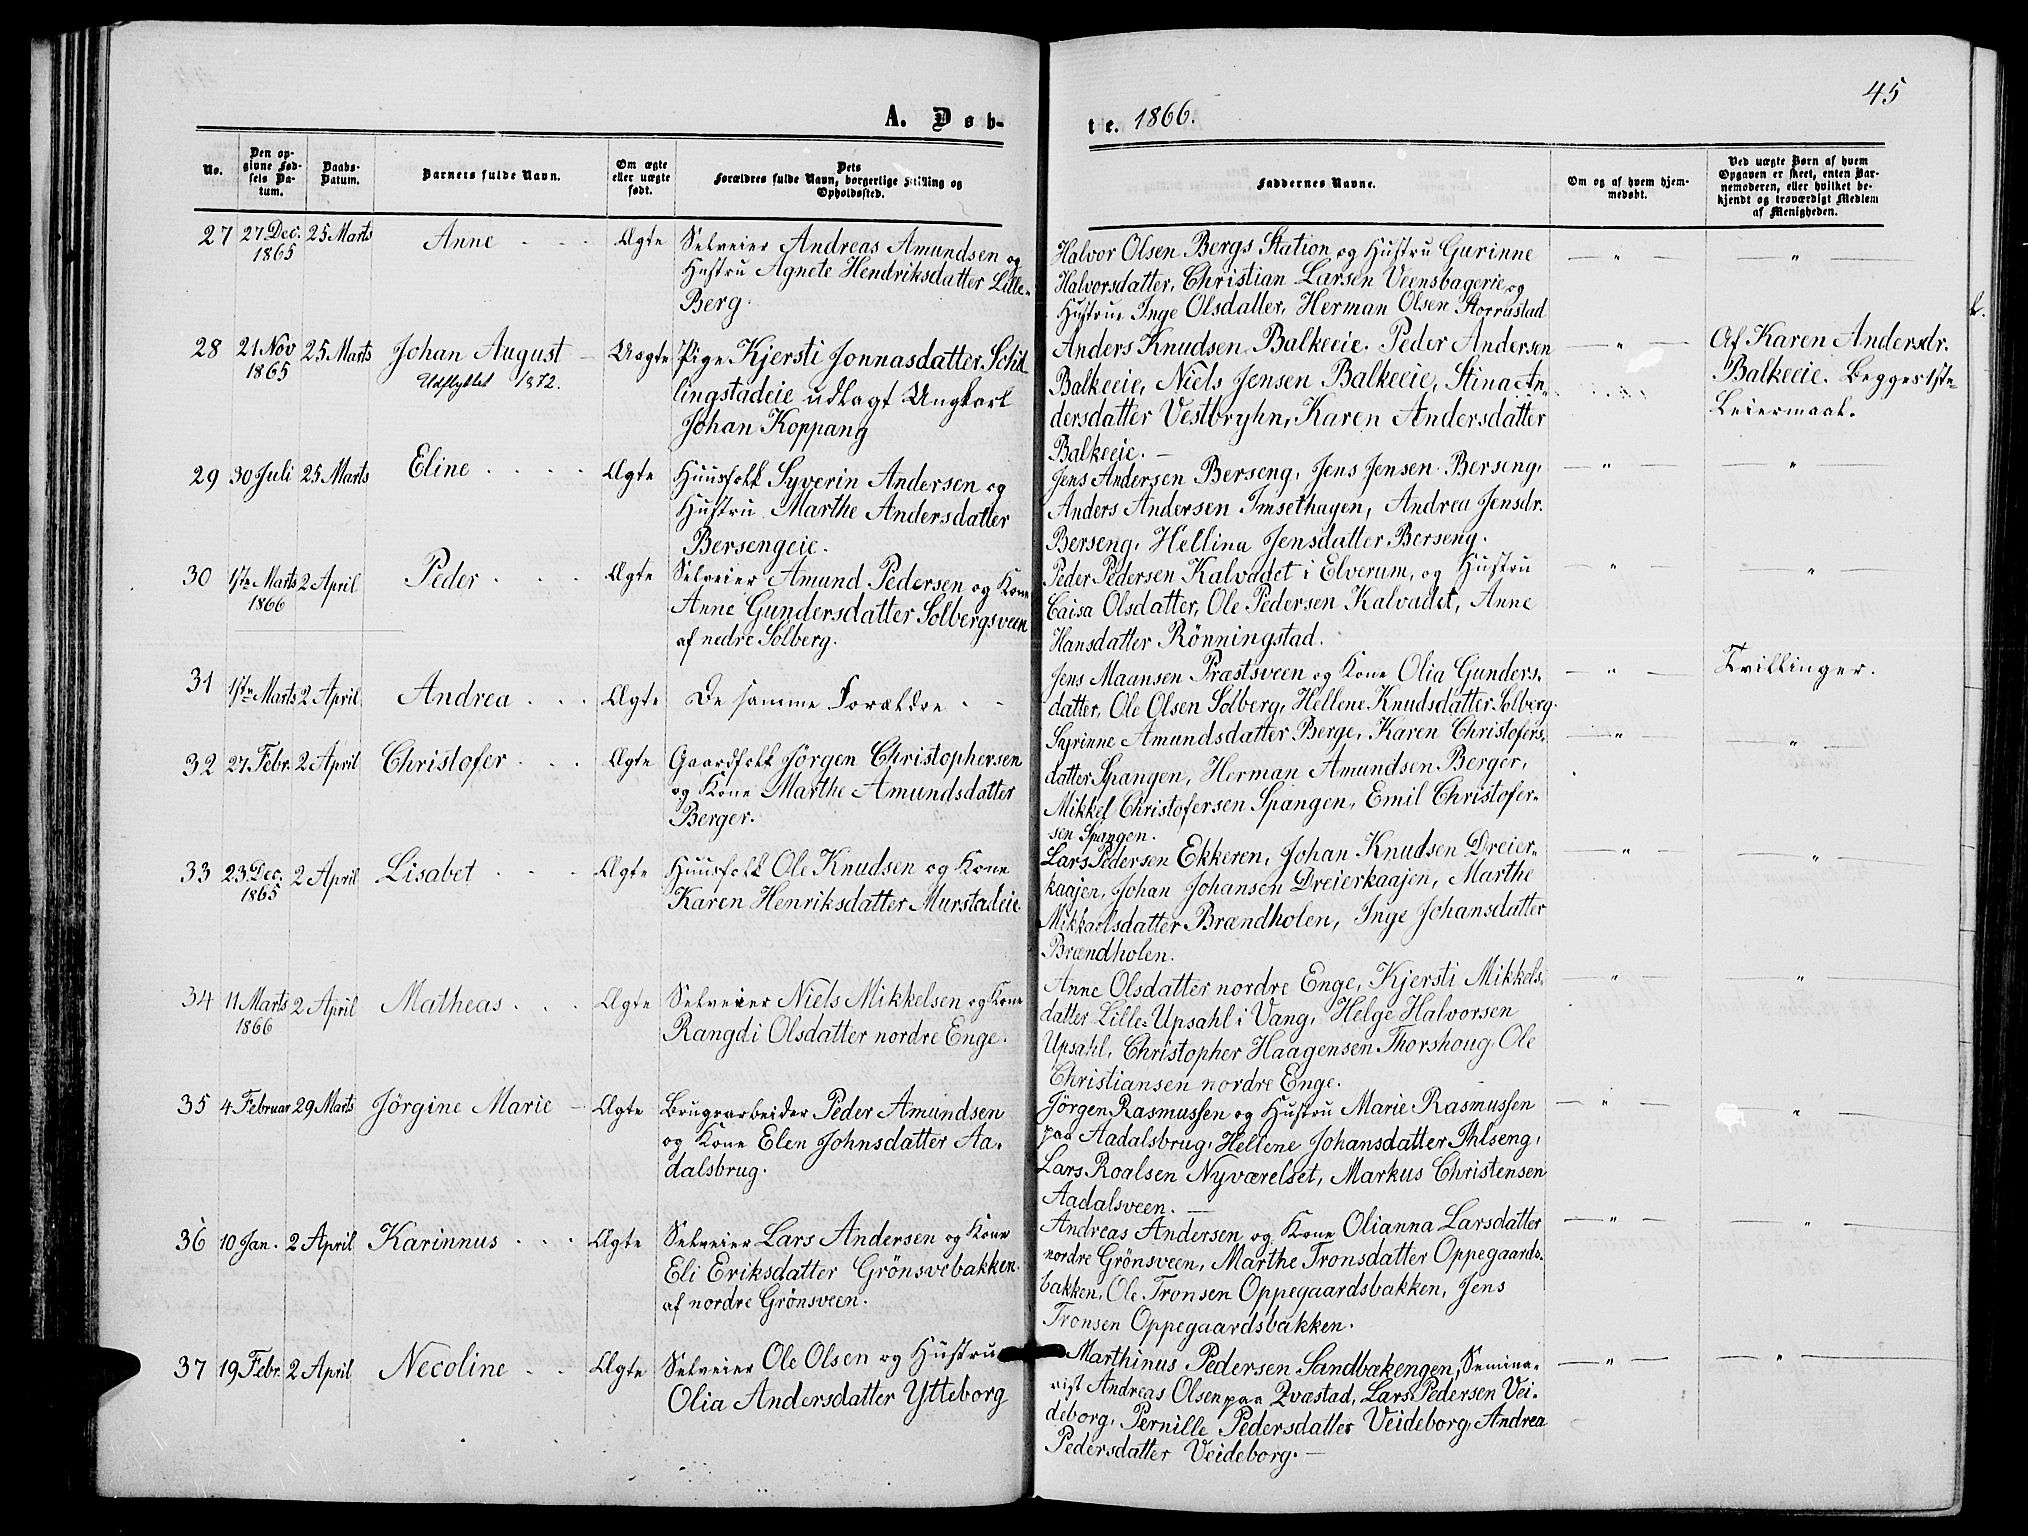 45
A. Døb-
te. 1866.
No.
Den op-
givne Fød-
sels Da-
tum.
Daabs-
Datum.
Barnets fulde Navn.
Om ægte
eller uægte
født.
Dets
Forældres fulde Navn, borgerlige Stilling og
Opholdssted.
Faddernes Navne.
Om og af hvem hjem-
medøbt.
Ved uægte Børn af hvem
Opgaven er skeet, enten Bar-
nemoderen, eller hvilket be-
kjendt og troværdigt Medlem
af Menigheden.
27 27 Dec. 25 Marts Anne Ægte Selveier Andreas Amundsen og
1865 Hustru Agnete Hendriksdatter Lille-
Berg.
Halvor Olsen Bergs Station og Hustru Gurinne
Halvorsdatter, Christian Larsen Veensbagerie og
Hustrue Inge Olsdatter, Herman Olsen Storrustad
28 21 Nov 25 Marts Johan August Uægte Pige Kjersti Jonnasdatter Schil
1865 Udflyttet 1872. lingstadeie udlagt Ungkarl
Johan Koppang
Anders Knudsen Balkeeie. Peder Andersen
Balkeeie, Niels Jensen Balkeeie, Stina An-
dersdatter Vestbryhn, Karen Andersdatter
Balkeeie.
Af Karen Andersdr.
Balkeeie. Begges 1ste
Leiermaal.
29 30 Juli 25 Marts Eline Ægte Huusfolk Syverin Andersen og
Hustru Marthe Andersdatter
Bersengeie.
Jens Andersen Berseng, Jens Jensen Berseng,
Anders Andersen Imsethagen, Andrea Jensdr.
Berseng, Hellina Jensdatter Berseng.
30 1ste Marts 2 April Peder Ægte Selveier Amund Pedersen og Kone
1866 Anne Gundersdatter Solbergsveen
af nedre Solberg.
Peder Pedersen Kalvadet i Elverum, og Hustru
Caisa Olsdatter, Ole Pedersen Kalvadet, Anne
Hansdatter Rönningstad.
31 1ste Marts 2 April Andrea Ægte De samme Forældre
Jens Maansen Præstsveen og Kone Olia Gunders-
datter, Ole Olsen Solberg, Hellene Knudsdatter Solberg.
Tvillinger.
32 27 Febr. 2 April Christofer Ægte Gaardfolk Jörgen Christophersen
og Kone Marthe Amundsdatter
Berger.
Syrinne Amundsdatter Berge, Karen Christofers-
datter Spangen, Herman Amundsen Berger,
Mikkel Christofersen Spangen, Emil Christofer-
sen Spangen.
33 23 Dec. 2 April Lisabet Ægte Huusfolk Ole Knudsen og Kone
1865 Karen Henriksdatter Murstadeie
Lars Pedersen Ekkeren, Johan Knudsen Dreier-
kaajen, Johan Johansen Dreierkaajen, Marthe
Mikkaelsdatter Brændholen, Inge Johansdatter
Brændholen.
34 11 Marts 2 April Matheas Ægte Selveier Niels Mikkelsen og Kone
1866 Rangdi Olsdatter nordre Enge.
Anne Olsdatter nordre Enge, Kjersti Mikkels-
datter Lille-Upsahl i Vang, Helge Halvorsen
Upsahl, Christopher Haagensen Thorshoug, Ole
Christiansen nordre Enge.
35 4 Februar 29 Marts Jörgine Marie Ægte Brugsarbeider Peder Amundsen
og Kone Elen Johnsdatter Aa-
dalsbrug.
Jörgen Rasmussen og Hustru Marie Rasmussen
paa Aadalsbrug, Hellene Johansdatter Ihlseng,
Lars Roalsen Nyværelset, Markus Christensen
Aadalsveen.
36 10 Jan. 2 April Karinnus Ægte Selveier Lars Andersen og Kone
Eli Eriksdatter Grönsvebakken
af nordre Grönsveen.
Andreas Andersen og Kone Olianna Larsdatter
nordre Grönsveen, Marthe Tronsdatter Oppegaards-
bakken, Ole Tronsen Oppegaardsbakken, Jens
Tronsen Oppegaardsbakken.
37 19 Febr. 2 April Necoline Ægte Selveier Ole Olsen og Hustru
Olia Andersdatter Ytteborg
Marthinus Pedersen Sandbakengen, Semina-
rist Andreas Olsen paa Qvæstad, Lars Pedersen Vei-
deborg, Pernille Pedersdatter Veideborg, Andrea
Pedersdatter Veideborg.